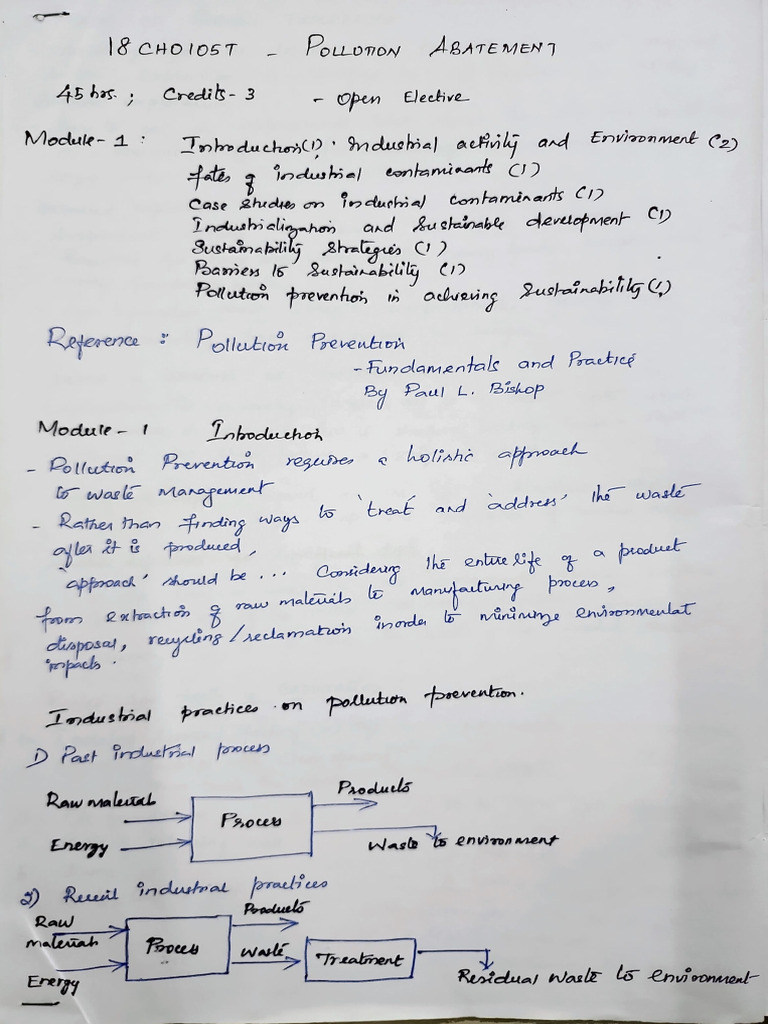 18CHO105T - POLLUTION ABATEMENT
45 hrs. ; Credits - 3 - Open Elective
Module - 1 : Introduction (1) . Industrial activity and Environment (2)
fates of industrial contaminants (1)
Case studies on industrial contaminants (1)
Industrialization and Sustainable development (1)
Sustainability strategies (1)
Barriers to Sustainability (1)
Pollution prevention in achieving Sustainability (1)
Reference : Pollution Prevention
- Fundamentals and Practice
By Paul L. Bishop
Module - 1 Introduction
- Pollution Prevention requires a holistic approach
to waste management
- Rather than finding ways to 'treat' and 'address' the waste
after it is produced,
'approach' should be ... Considering the entire life of a product
from extraction of raw materials to manufacturing process,
disposal, recycling / reclamation inorder to minimize environmental
impacts.
Industrial practices on pollution prevention.
1) Past industrial process
Raw material
Energy
Process
Products
Waste to environment
2) Recent industrial practices
Raw
materials
Energy
Process
Products
Waste
Treatment
Residual waste to environment